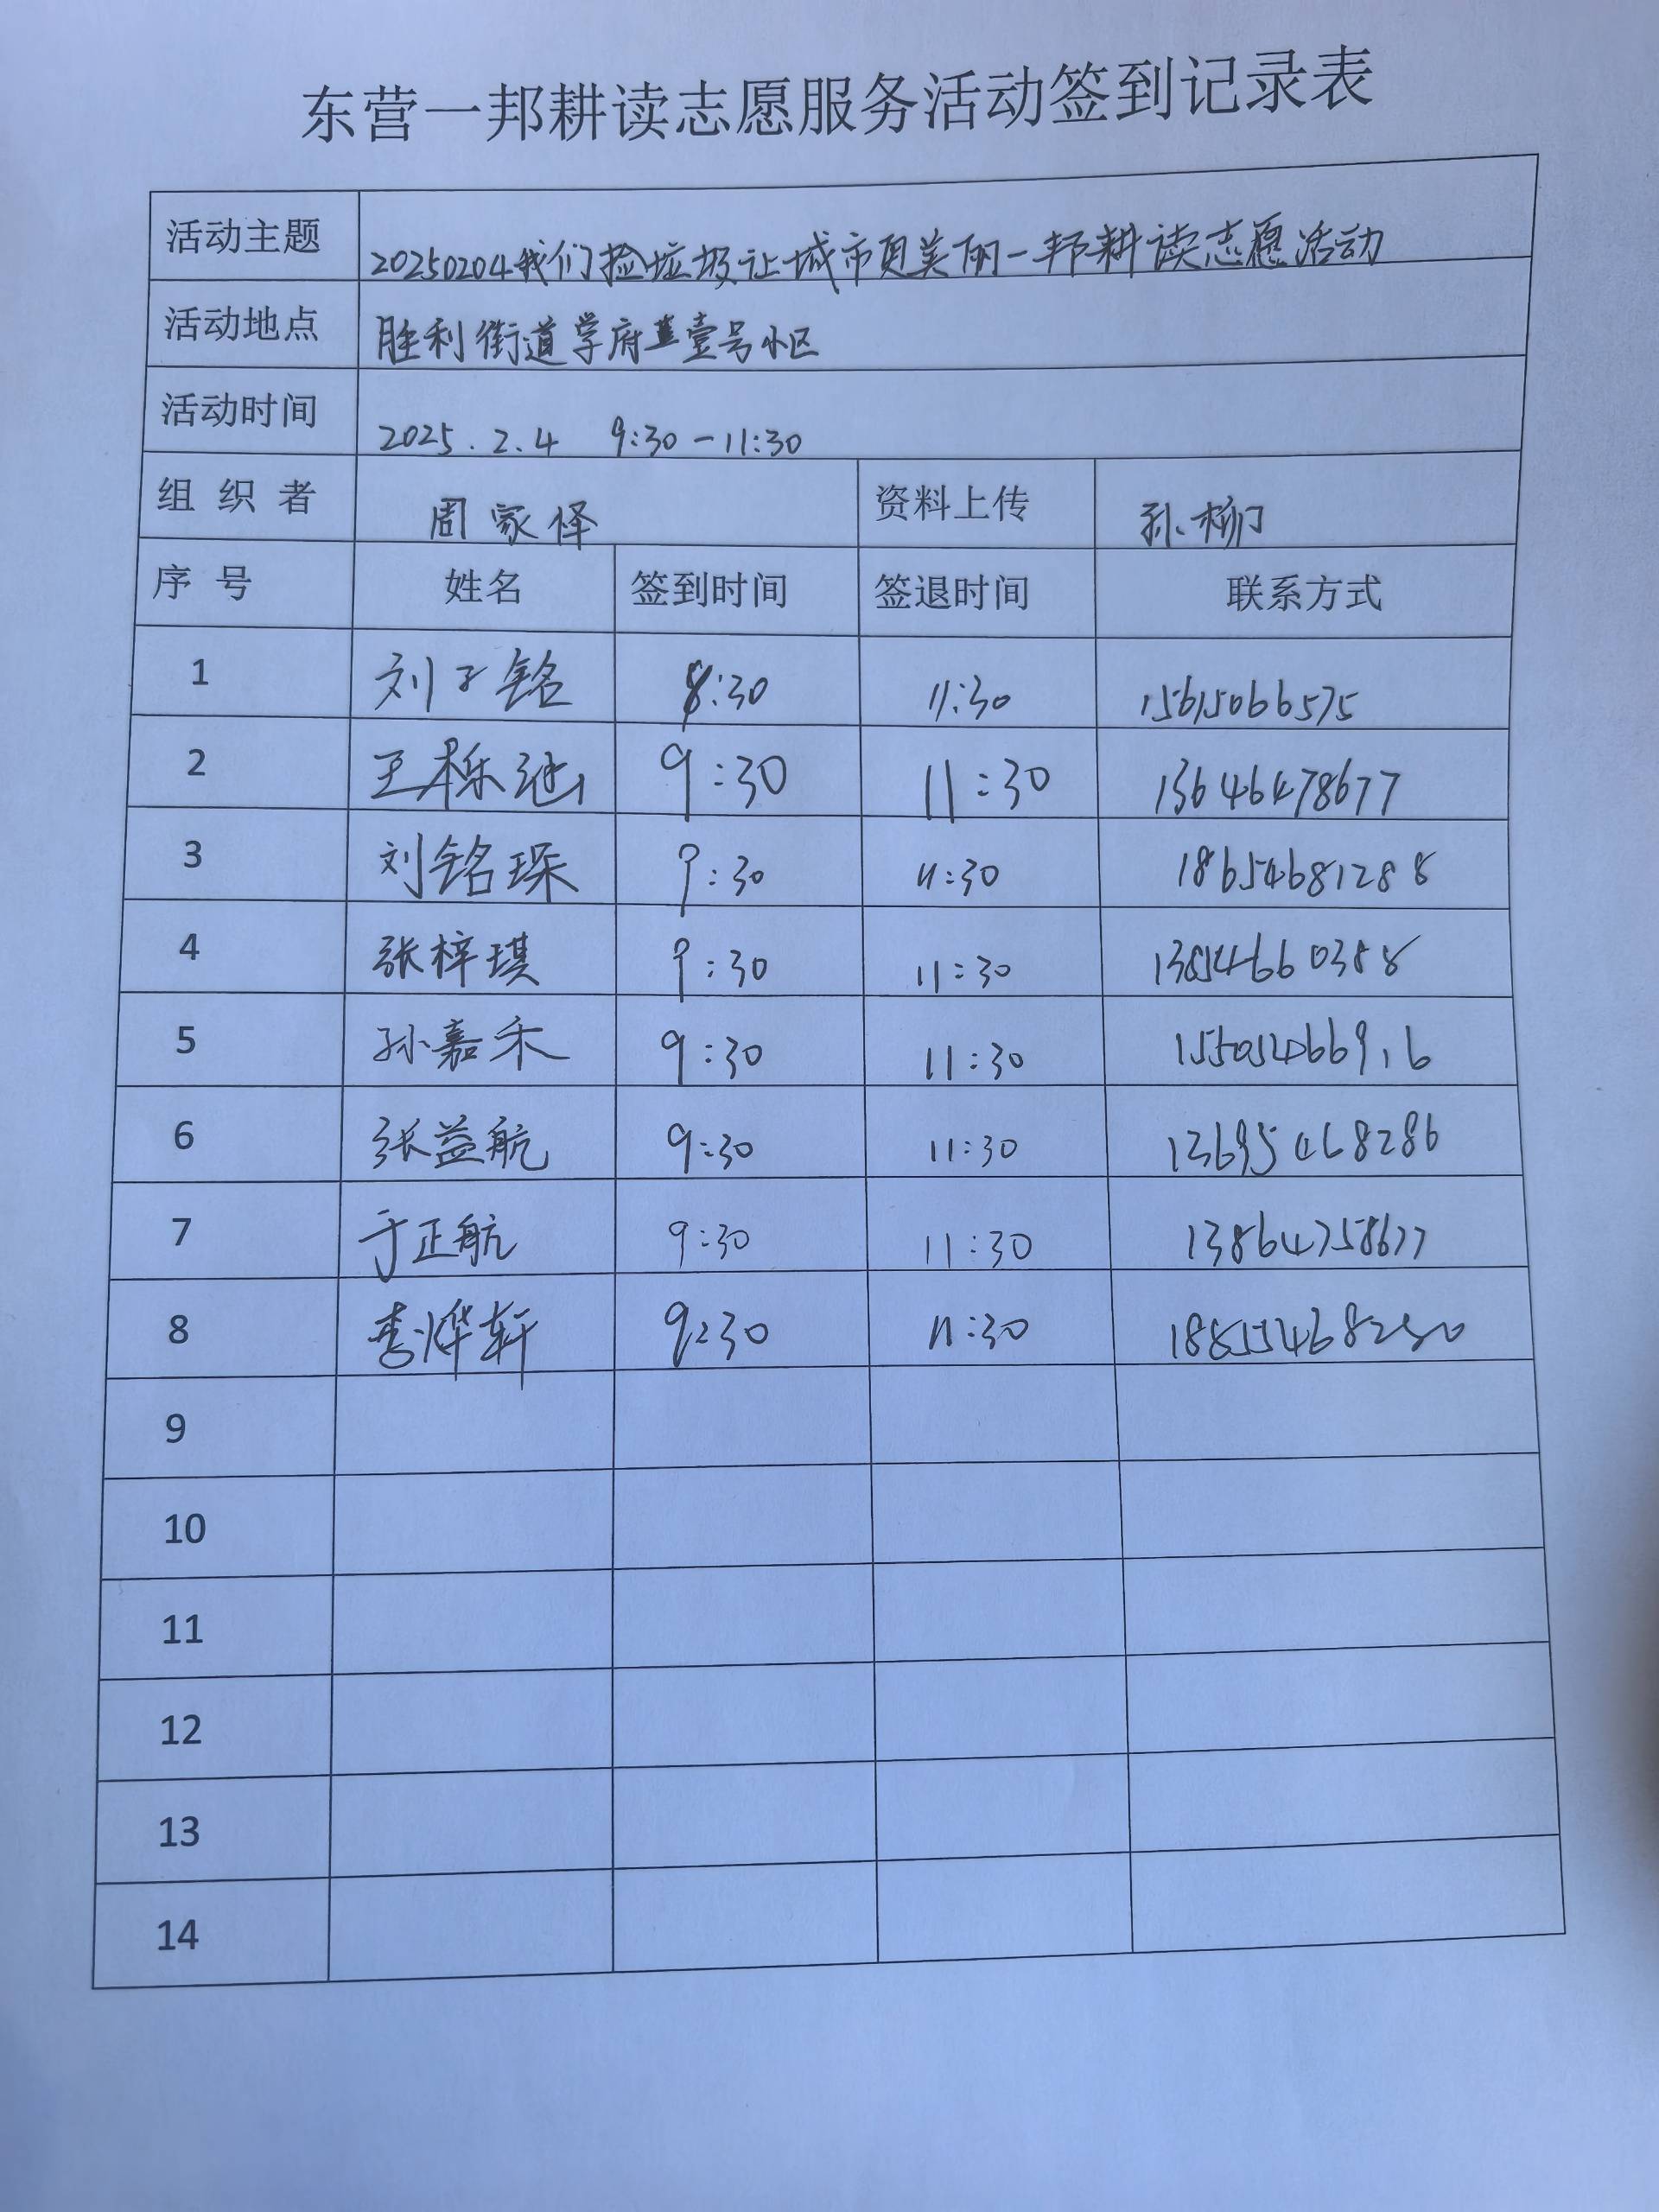 东营一邦耕读志愿服务活动签到记录表
活动主题 20250204我们捡垃圾让城市更美丽一邦耕读志愿活动
活动地点 胜利街道学府壹号小区
活动时间 2025.2.4 9:30-11:30
组织者 周家怿 资料上传 孙杨
序号 姓名 签到时间 签退时间 联系方式
1 刘子铭 :30 11:30 15615066575
2 王栎 9:30 11:30 13646478677
3 刘铭琛 9:30 11:30 18654681288
4 张梓琪 9:30 11:30
5 孙嘉禾 9:30 11:30 15505406916
6 张益航 9:30 11:30 13695468286
7 于正航 9:30 11:30 13864758677
8 李烨轩 9:30 11:30
9
10
11
12
13
14